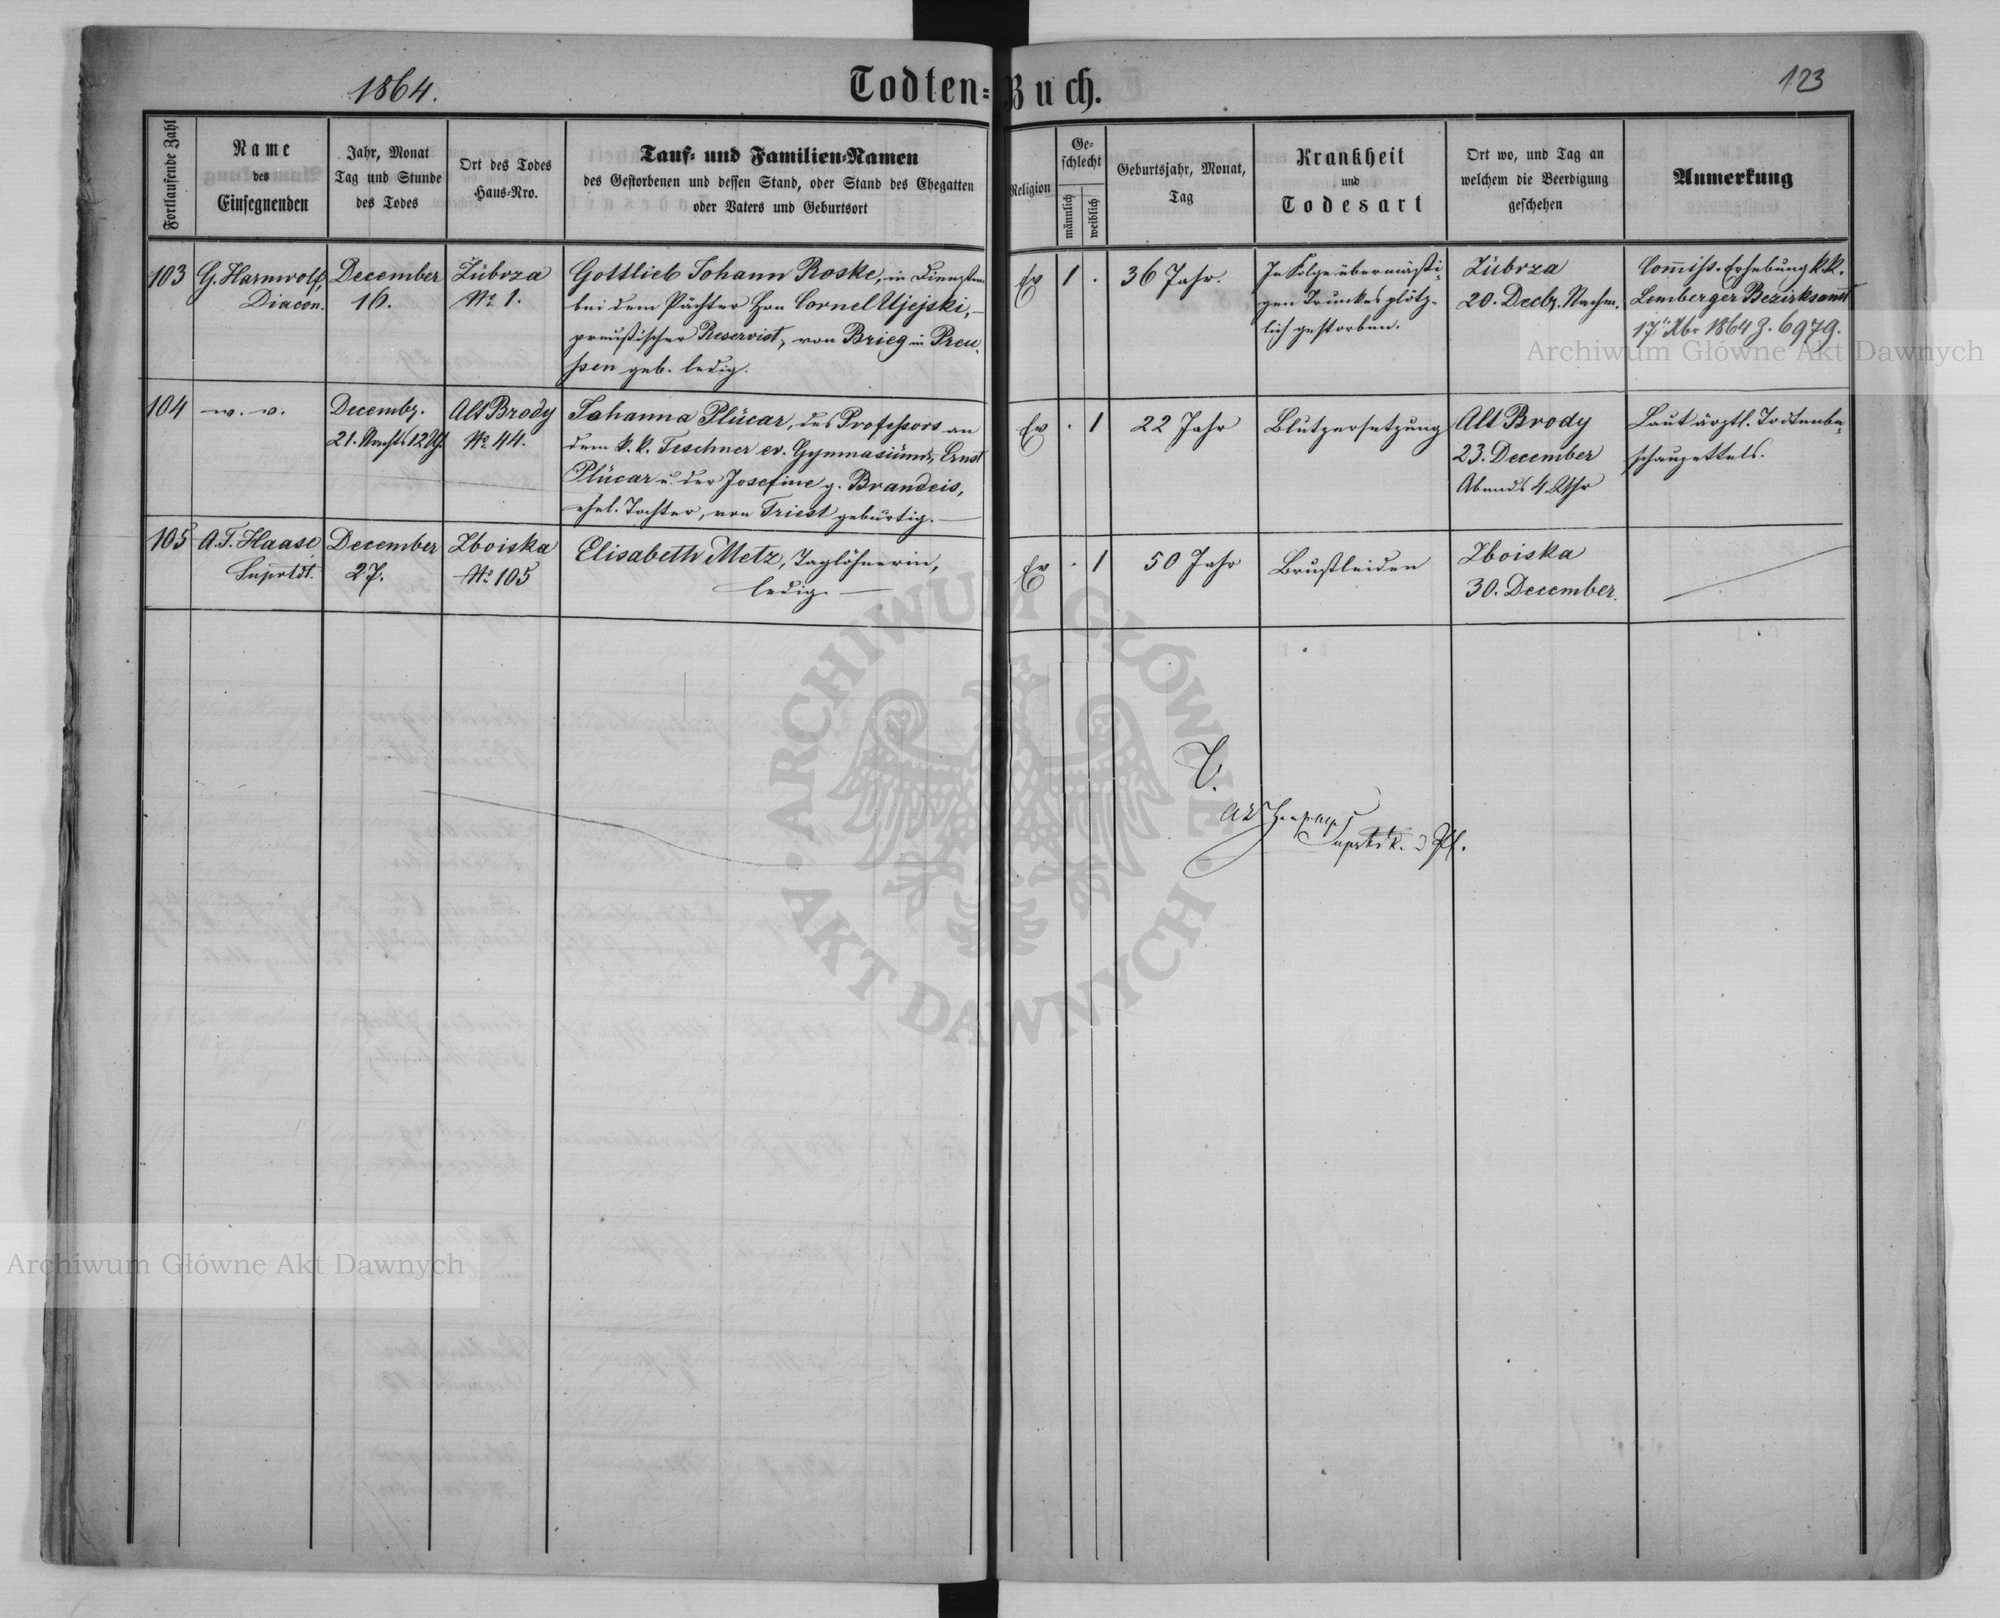 1864.
Todten-Buch.
123
Fortlaufende Zahl
Name
des
Einsegnenden
Jahr, Monat
Tag und Stunde
des Todes
Ort des Todes
Haus-Nro.
Tauf- und Familien-Namen
des Gestorbenen und dessen Stand, oder Stand des Ehegatten
oder Vaters und Geburtsort
Religion
Ge-
schlecht
männlich
weiblich
Geburtsjahr, Monat,
Tag
Krankheit
und
Todesart
Ort wo, und Tag an
welchem die Beerdigung
geschehen
Anmerkung
103
G. Harnwolf,
Diacon.
December
16.
Zubrza
No 1.
Gottlieb Johann Roske, in Diensten
bei dem Pächter Hrn Cornel Ujejski, –
preußischer Reservist, von Brieg in Preu-
ßen geb. ledig.
Ev
1 .
36 Jahr.
In Folge übermäßi-
gen Trunkes plötz-
lich gestorben.
Zubrza
20. Decbr. Nachm.
Commiss. Erhebung k.k.
Lemberger Bezirksamt
17 Xbr 1864 Z. 6979.
104
Decembr.
21. Nachts 12 Uhr
Alt Brody
No 44.
Johanna Plucar, des Professors an
dem k. k. Teschner ev. Gymnasium, Ernst
Plucar u. der Josefine g. Brandeis,
ehel. Tochter, von Triest gebürtig. –
Ev
. 1
22 Jahr
Blutzersetzung
Alt Brody
23. December
Abends 4 Uhr
Laut ärztl. Todtenbe-
schauzettels.
105
A. T. Haase
Suprtdt.
December
27.
Zboiska
No 105
Elisabeth Metz, Taglöhnerin,
ledig. –
Ev
. 1
50 Jahr
Brustleiden
Zboiska
30. December.
Archiwum Główne Akt Dawnych
ARCHIWUM GŁÓWNE
AKT DAWNYCH
Archiwum Główne Akt Dawnych